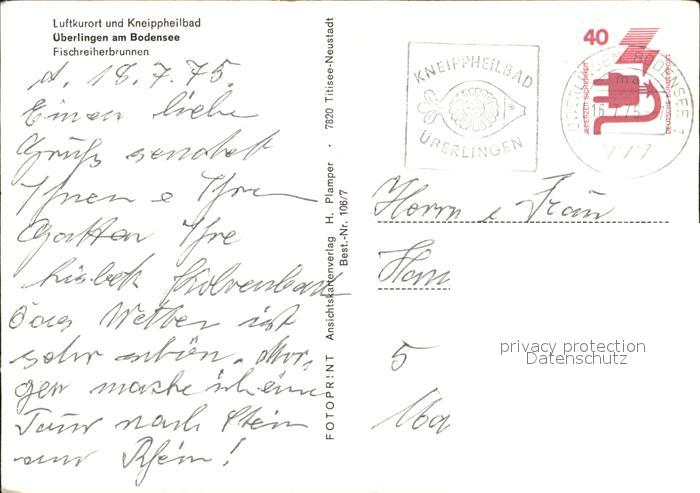 Luftkurort und Kneippheilbad
Überlingen am Bodensee
Fischreiherbrunnen
d. 18.7.75.
Einen liebe
Gruß sendet
Ihnen e Ihre
Gatten Ihre
das Wetter ist
sehr schön. Mor,
gen mache ich eine
Tour nach Stein
am Rhein!
FOTOPRINT Ansichtskartenverlag H. Plamper · 7820 Titisee-Neustadt
Best.-Nr. 106/7
KNEIPPHEILBAD
ÜBERLINGEN
40
JEDERZEIT SICHERHEIT
DEUTSCHE BUNDESPOST
Herrn e Frau
5
privacy protection
Datenschutz